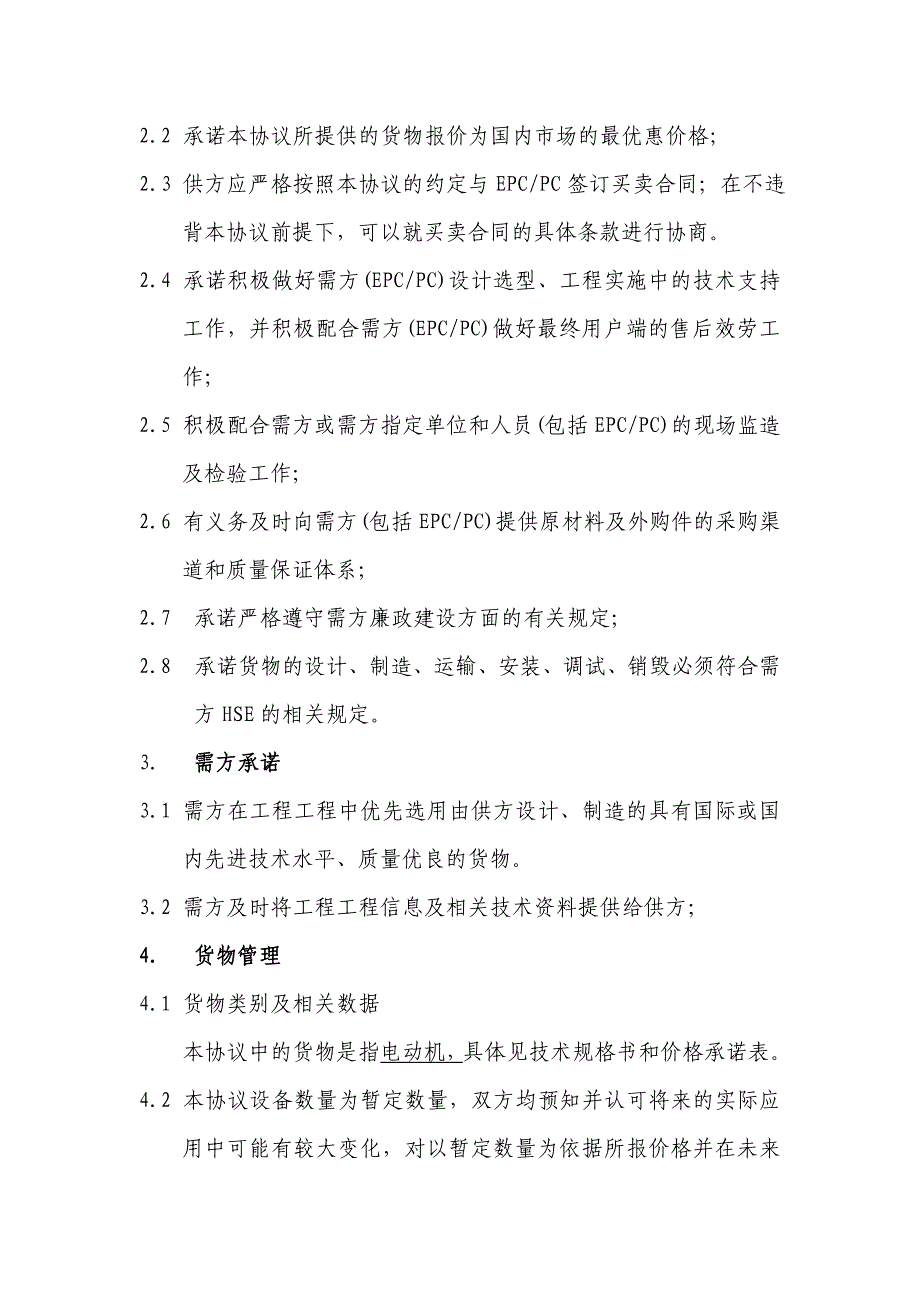 2.2 承诺本协议所提供的货物报价为国内市场的最优惠价格;
2.3 供方应严格按照本协议的约定与 EPC/PC 签订买卖合同；在不违
背本协议前提下，可以就买卖合同的具体条款进行协商。
2.4 承诺积极做好需方(EPC/PC)设计选型、工程实施中的技术支持
工作，并积极配合需方(EPC/PC)做好最终用户端的售后效劳工
作;
2.5 积极配合需方或需方指定单位和人员(包括 EPC/PC)的现场监造
及检验工作;
2.6 有义务及时向需方(包括 EPC/PC)提供原材料及外购件的采购渠
道和质量保证体系;
2.7 承诺严格遵守需方廉政建设方面的有关规定;
2.8 承诺货物的设计、制造、运输、安装、调试、销毁必须符合需
方 HSE 的相关规定。
3. 需方承诺
3.1 需方在工程工程中优先选用由供方设计、制造的具有国际或国
内先进技术水平、质量优良的货物。
3.2 需方及时将工程工程信息及相关技术资料提供给供方;
4. 货物管理
4.1 货物类别及相关数据
本协议中的货物是指电动机，具体见技术规格书和价格承诺表。
4.2 本协议设备数量为暂定数量，双方均预知并认可将来的实际应
用中可能有较大变化，对以暂定数量为依据所报价格并在未来